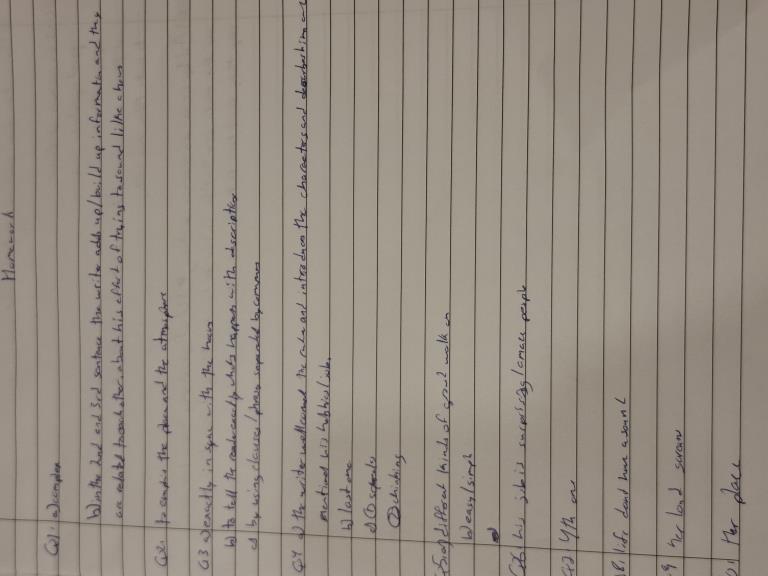 Homework
Q1. a) complex
b) in the 2nd and 3rd sentence the write adds up/build up information and they
are related to each other about his effort of trying to sound like a
Q2. to the place and the atmosphere
Q3 a) exactly in sync with the
b) to tell the reader exactly whats happens with description
c) by using clauses/phrases seperated by commas
Q4 a) the writer wellcomed the and introduces the characters and
mentioned his hobbies/job.
b) last one
c) ① seperate
②
Q5 a) different kinds of
b) easy/simple
Q6. his job is surprising/amaze people
Q7. 4th one
8. life dont have a sound
9. her loud scream
her place